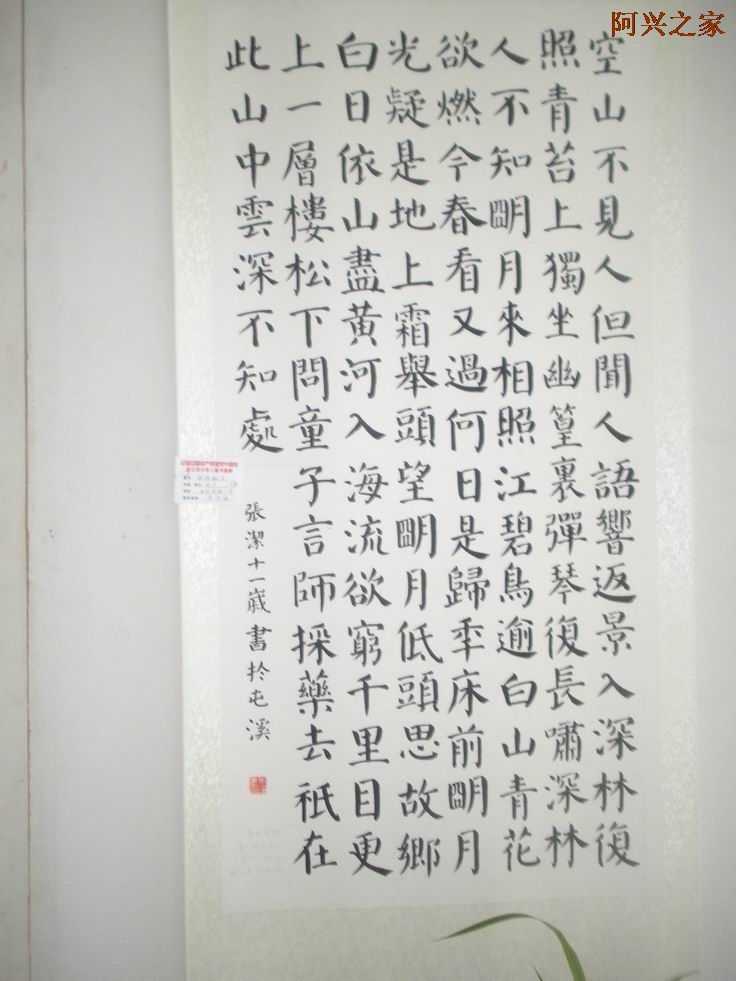 阿兴之家
空山不見人但聞人語響返景入深林復
照青苔上獨坐幽篁裏彈琴復長嘯深林
人不知朙月來相照江碧鳥逾白山青花
欲燃今春看又過何日是歸秊床前朙月
光疑是地上霜舉頭望朙月低頭思故鄉
白日依山盡黃河入海流欲窮千里目更
上一層樓松下問童子言師採藥去祇在
此山中雲深不知處
張潔十一歲書於屯溪